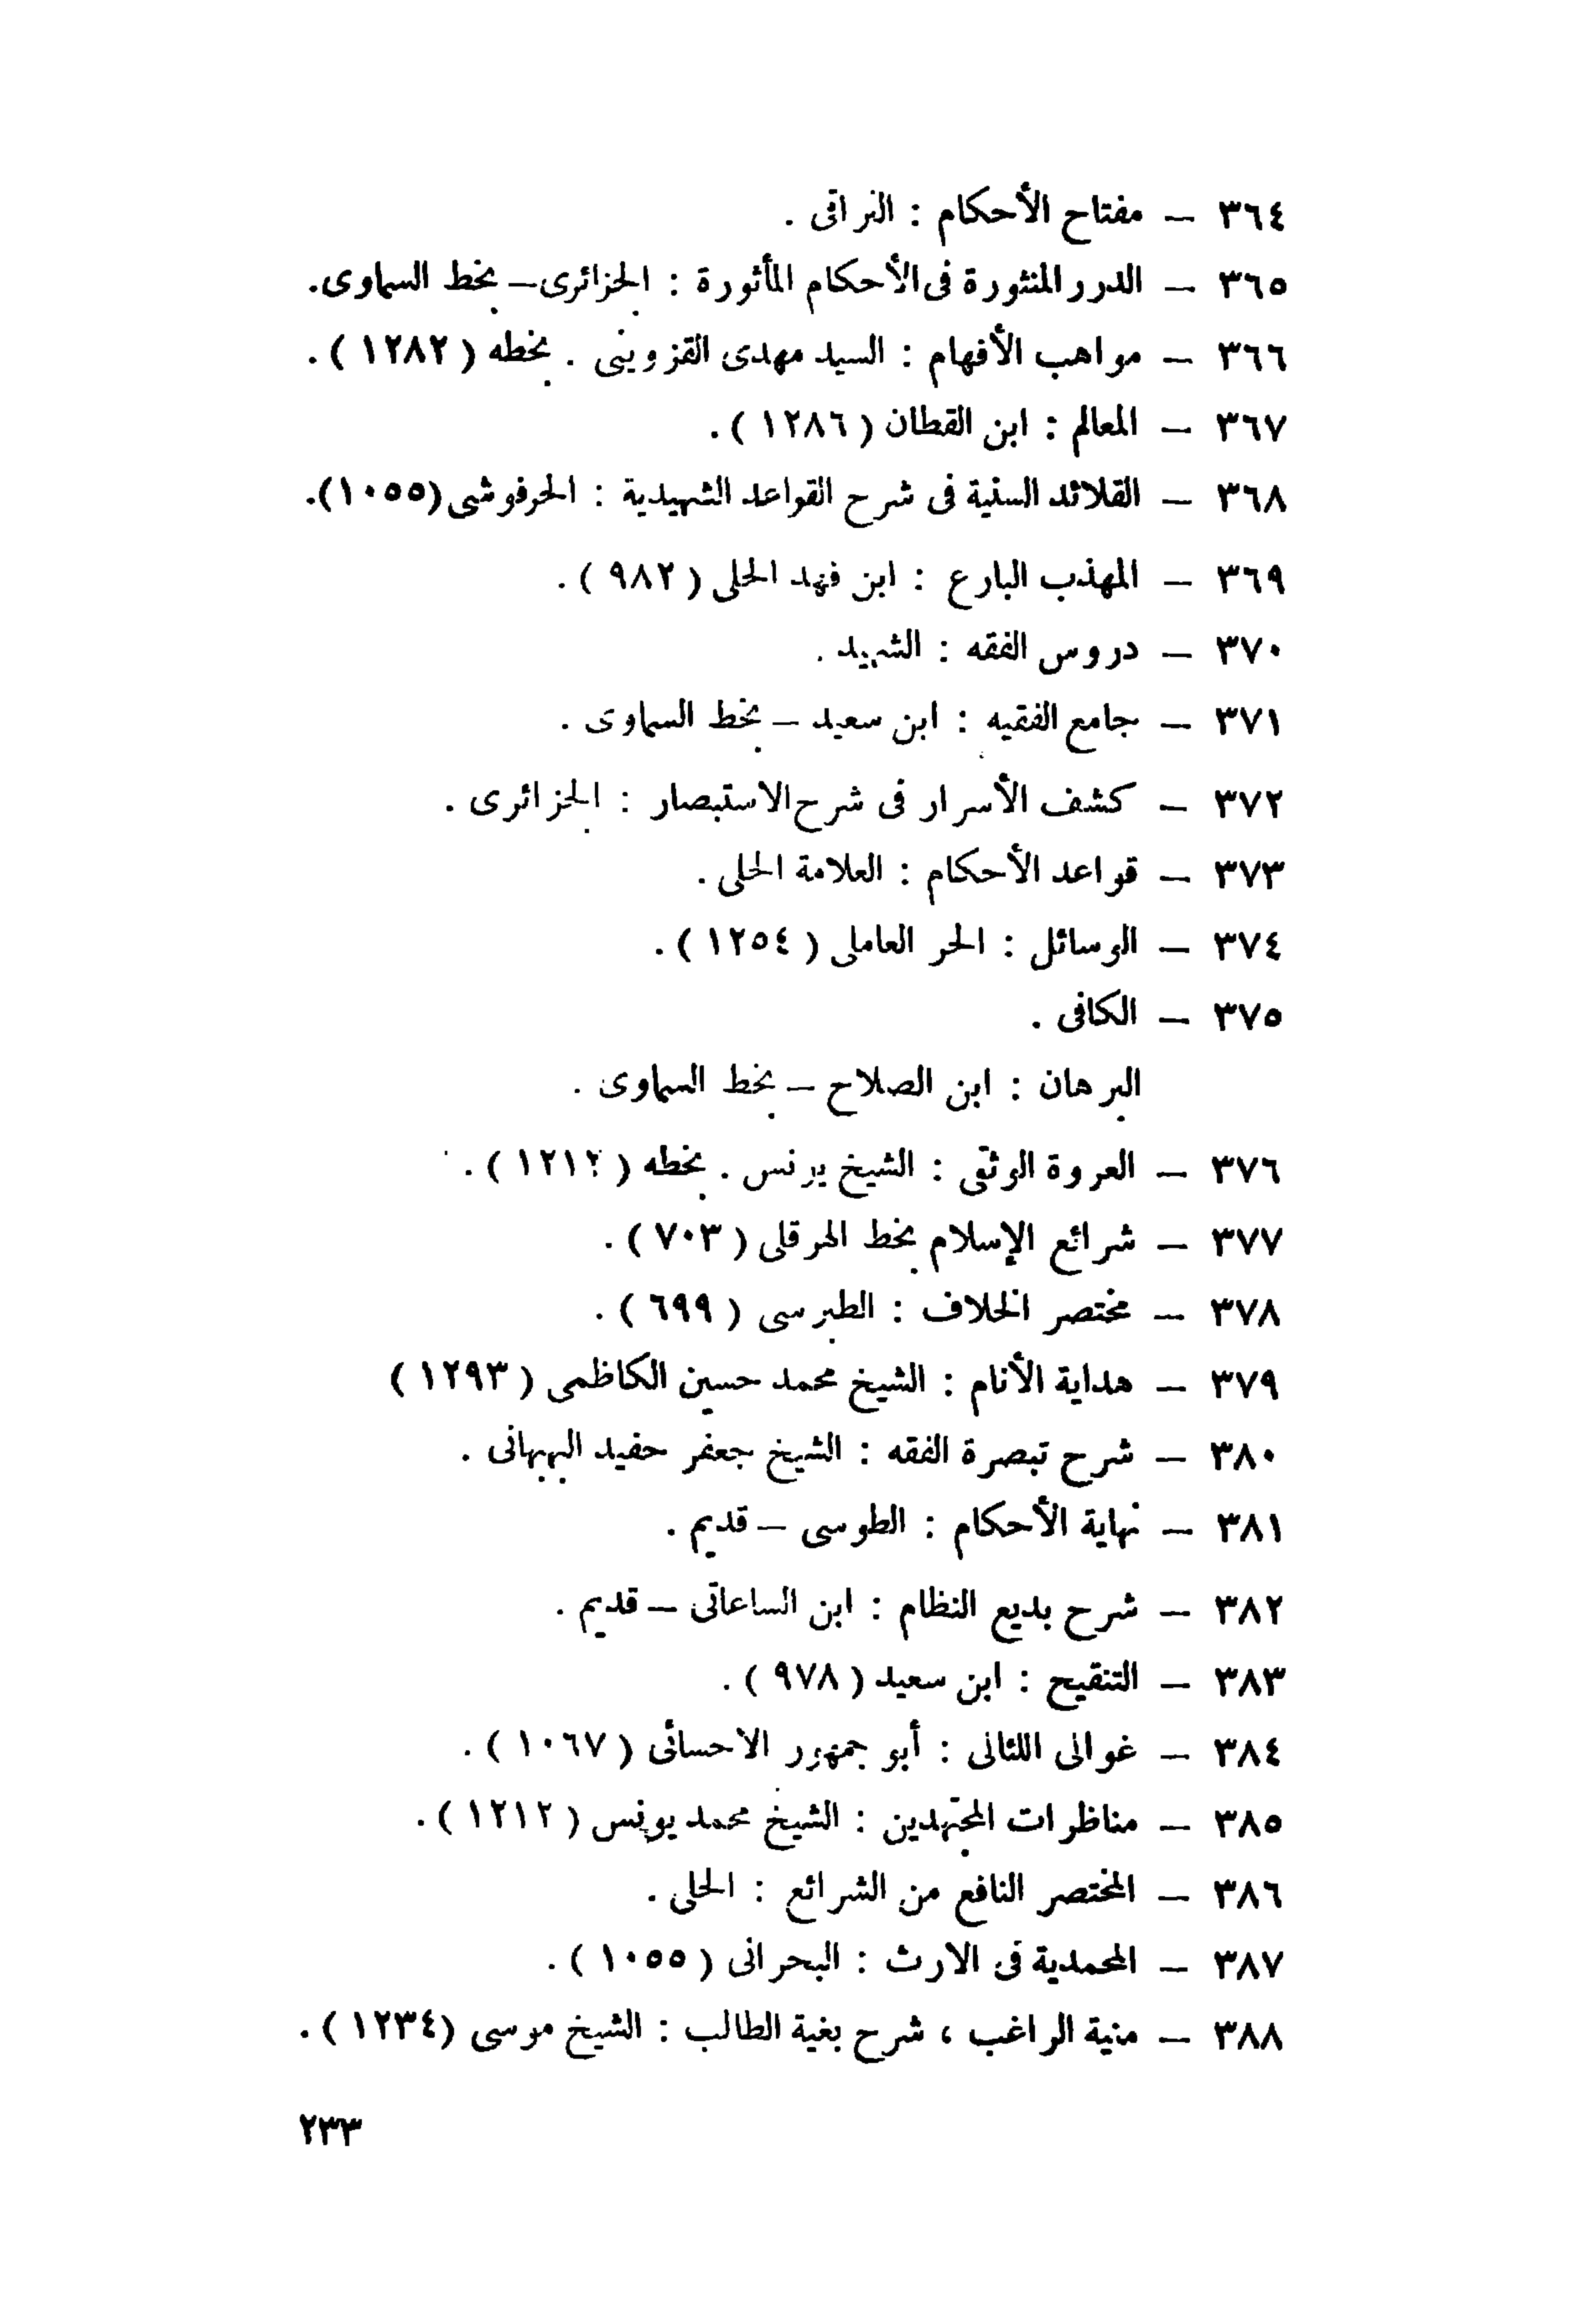 ٣٦٤ – مفتاح الأحكام : النراقى .
٣٦٥ – الدرر المنثورة فى الأحكام المأثورة : الجزائرى – بخط السماوى.
٣٦٦ – مواهب الأفهام : السيد مهدى القزوينى . بخطه ( ١٢٨٢ ) .
٣٦٧ – المعالم : ابن القطان ( ١٢٨٦ ) .
٣٦٨ – القلائد السنية فى شرح القواعد الشهيدية : الحرفوشى (١٠٥٥).
٣٦٩ – المهذب البارع : ابن فهد الحلى ( ٩٨٢ ) .
٣٧٠ – دروس الفقه : الشهيد .
٣٧١ – جامع الفقيه : ابن سعيد – بخط السماوى .
٣٧٢ – كشف الأسرار فى شرح الاستبصار : الجزائرى .
٣٧٣ – قواعد الأحكام : العلامة الحلى .
٣٧٤ – الوسائل : الحر العاملى ( ١٢٥٤ ) .
٣٧٥ – الكافى .
البرهان : ابن الصلاح – بخط السماوى .
٣٧٦ – العروة الوثقى : الشيخ يونس . بخطه ( ١٢١٢ ) .
٣٧٧ – شرائع الإسلام بخط الهرقلى ( ٧٠٣ ) .
٣٧٨ – مختصر الخلاف : الطبرسى ( ٦٩٩ ) .
٣٧٩ – هداية الأنام : الشيخ محمد حسين الكاظمى ( ١٢٩٣ )
٣٨٠ – شرح تبصرة الفقه : الشيخ جعفر حفيد البهبهانى .
٣٨١ – نهاية الأحكام : الطوسى – قديم .
٣٨٢ – شرح بديع النظام : ابن الساعاتى – قديم .
٣٨٣ – التنقيح : ابن سعيد ( ٩٧٨ ) .
٣٨٤ – غوالى اللئالى : أبو جمهور الاحسائى ( ١٠٦٧ ) .
٣٨٥ – مناظرات المجتهدين : الشيخ محمد يونس ( ١٢١٢ ) .
٣٨٦ – المختصر النافع من الشرائع : الحلى .
٣٨٧ – المحمدية فى الارث : البحرانى ( ١٠٥٥ ) .
٣٨٨ – منية الراغب ، شرح بغية الطالب : الشيخ موسى (١٢٣٤ ) .
٢٣٣